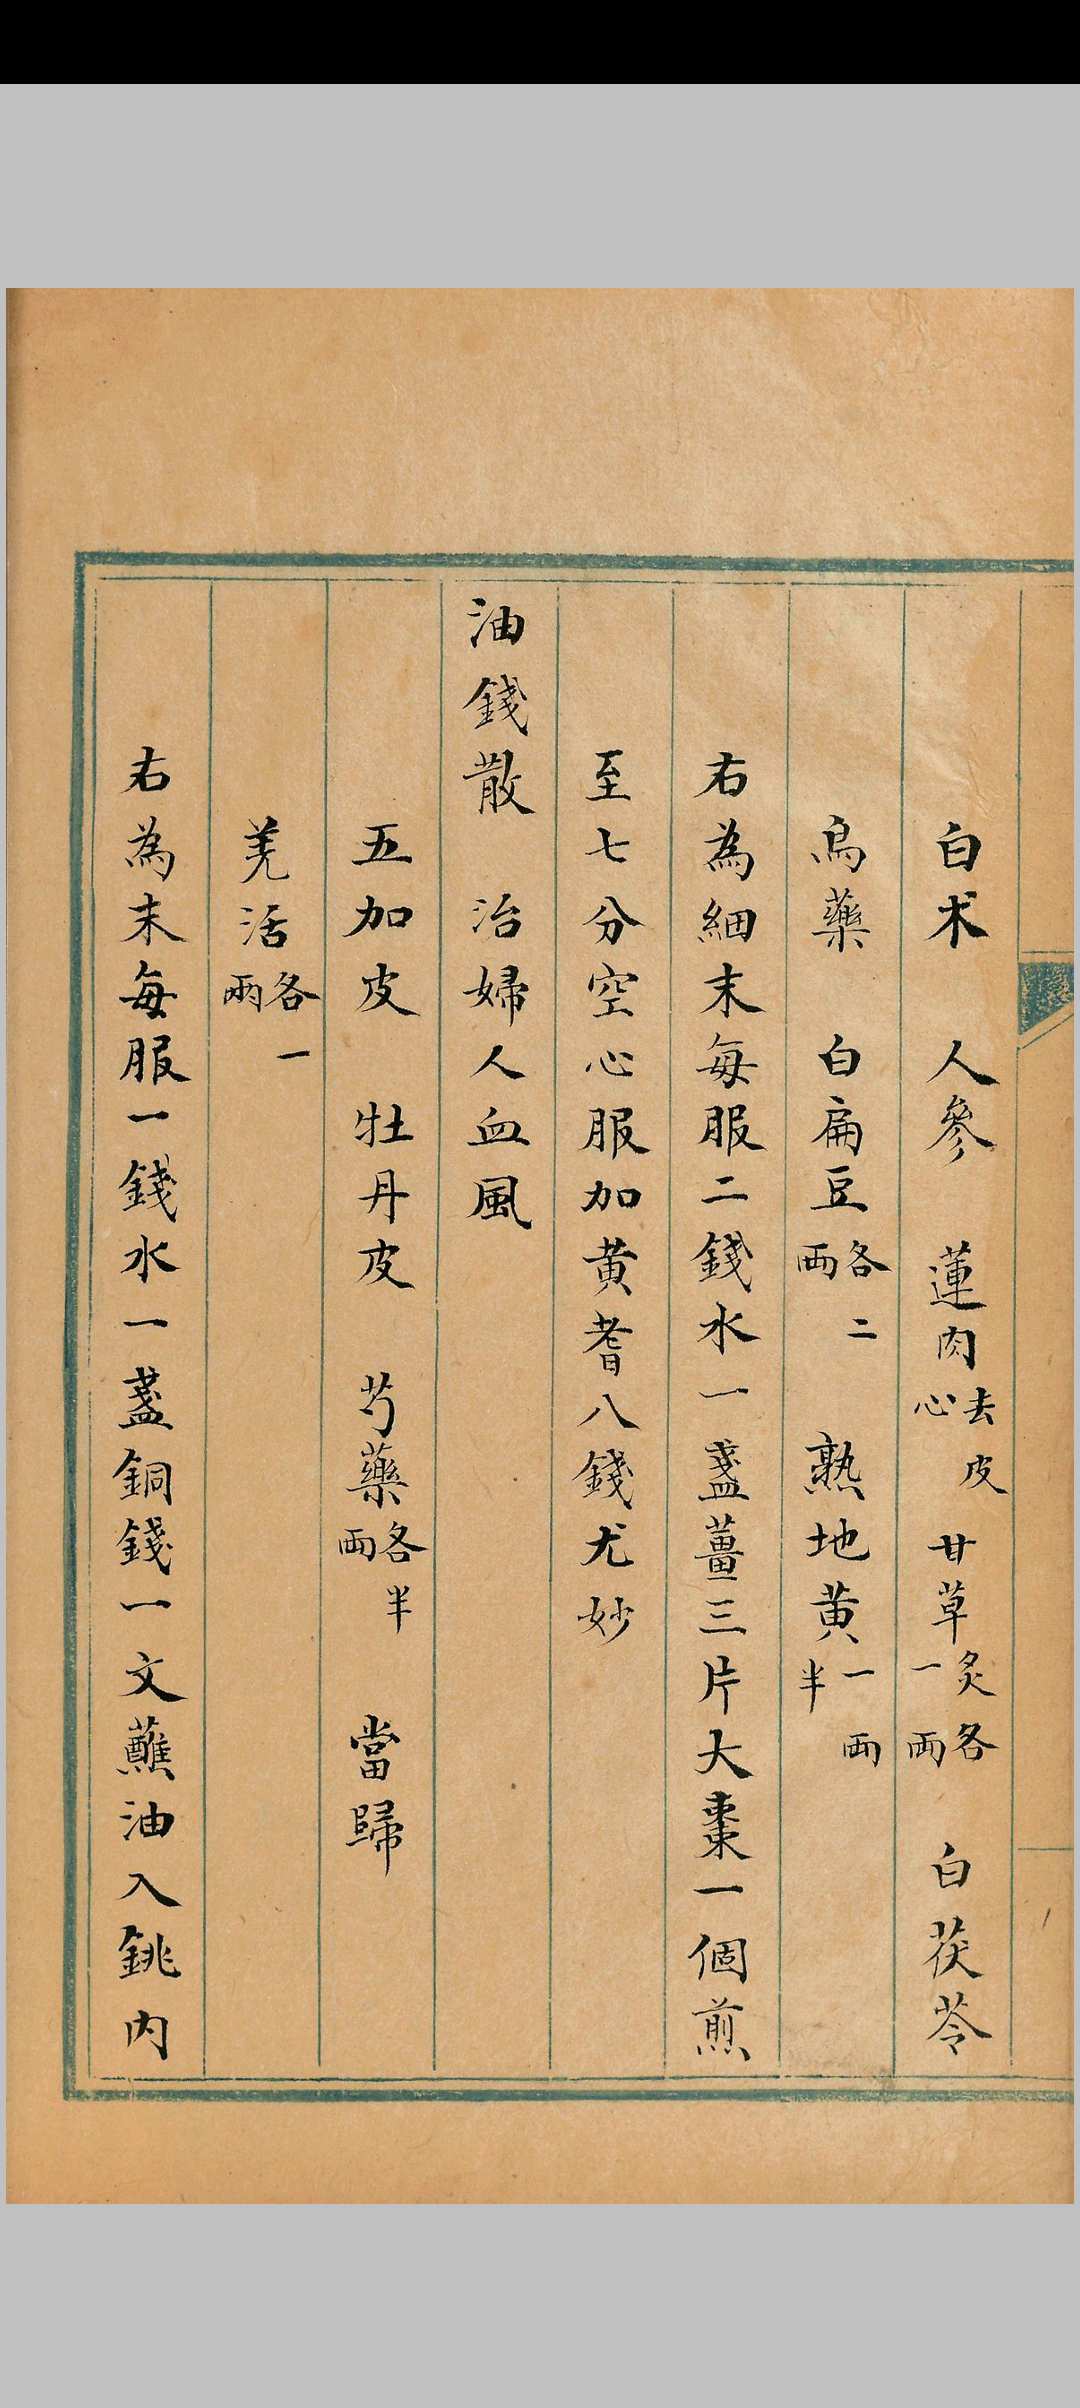 白术　人參　蓮肉去皮心　甘草炙各一兩　白茯苓
烏藥　白扁豆各二兩　熟地黄一兩半
右為細末每服二錢水一盞薑三片大棗一個煎
至七分空心服加黄耆八錢尤妙
油錢散　治婦人血風
五加皮　牡丹皮　芍藥各半兩　當歸
羌活各一兩
右為末每服一錢水一盞銅錢一文蘸油入銚内